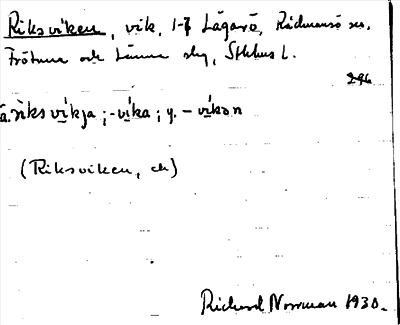 Riksviken, vik, 1-7 Lågarö, Rådmansö sn.
Frötuna och Länna slg, Sthlms l.
296
ä. riksvikja; -vika; y. -vikan
(Riksviken, ek)
Richard Norrman 1930.